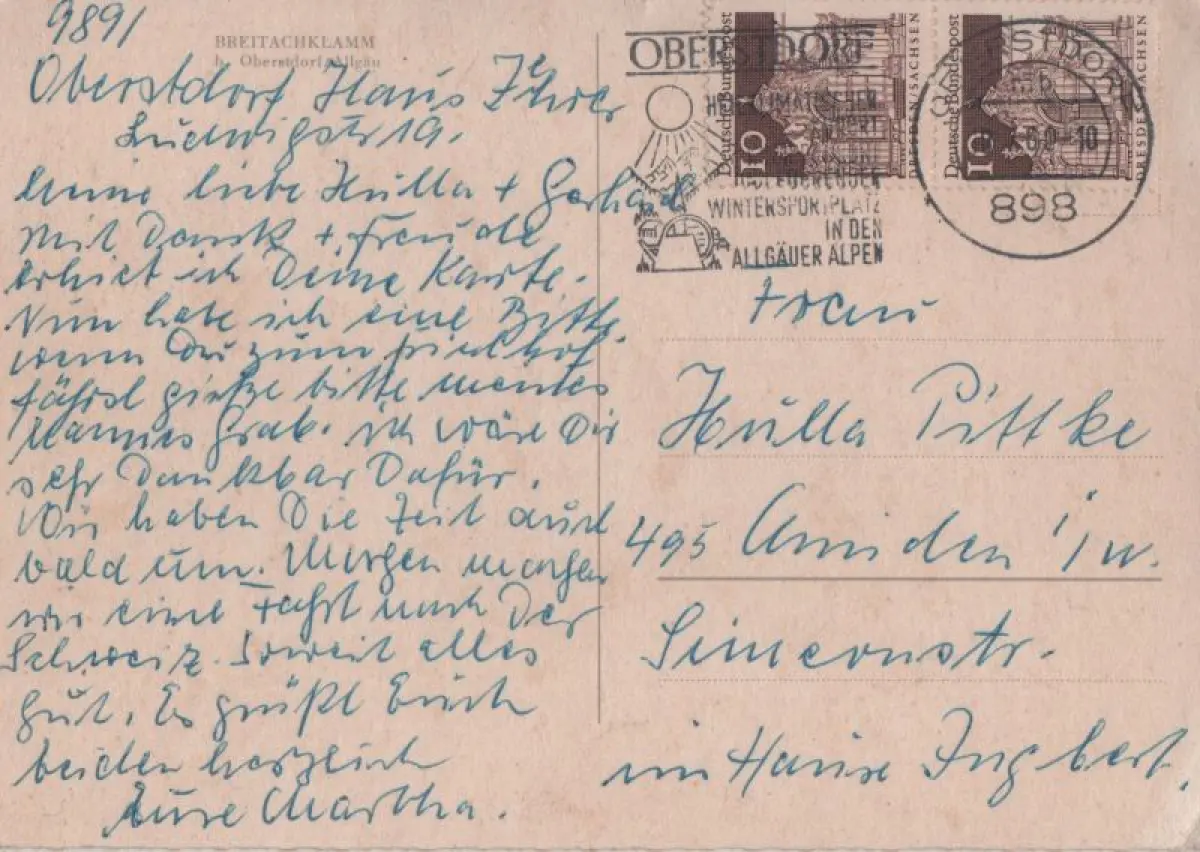 989/
BREITACHKLAMM
b. Oberstdorf/Allgäu
Oberstdorf Haus
Ludwigstr 19.
Meine liebe Hulla + Gerhard
Mit Dank + Freude
erhielt ich Deine Karte.
Nun habe ich eine Bitte
wenn Du zum Friedhof
fährst gieße bitte meines
Mannes Grab. ich wäre Dir
sehr Dankbar Dafür.
Wir haben Die Zeit auch
bald um. Morgen machen
wir eine Fahrt nach Der
Schweiz. Soweit alles
gut. Es grüßt Euch
beiden herzlich
Eure Martha.
OBERSTDORF
HEILKLIMATISCHER
KURORT
WINTERSPORTPLATZ
IN DEN
ALLGÄUER ALPEN
Deutsche Bundespost
10
DRESDEN/SACHSEN
Deutsche Bundespost
10
DRESDEN/SACHSEN
OBERSTDORF
-10
898
Frau
Hulla Pittke
495 Minden i/w.
Simeonstr.
im Hause Ingbert.